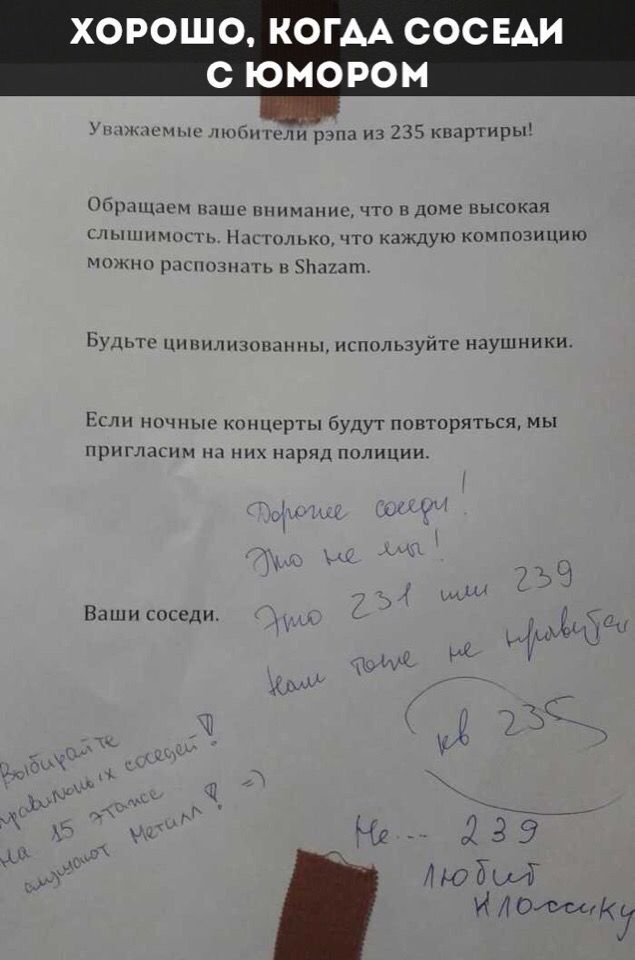 ХОРОШО, КОГДА СОСЕДИ
С ЮМОРОМ
Уважаемые любители рэпа из 235 квартиры!
Обращаем ваше внимание, что в доме высокая
слышимость. Настолько, что каждую композицию
можно распознать в Shazam.
Будьте цивилизованны, используйте наушники.
Если ночные концерты будут повторяться, мы
пригласим на них наряд полиции.
Ваши соседи.
Дорогие соседи!
Это не мы!
Это 231 или 239
Нам тоже не нравится
кв 235
Выбирайте
правильных соседей!
На 15 этаже
слушают Металл! =)
Не... 239
любит
классику